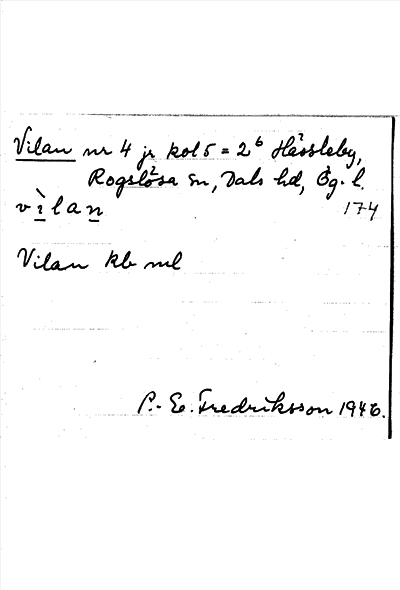 Vilan nr 4 jr kol 5 = 2⁶ Hässleby,
Rogslösa sn, Dals hd, Ög. l.
v ì l a n 174
Vilan kb ml
P.-E. Fredriksson 1946.